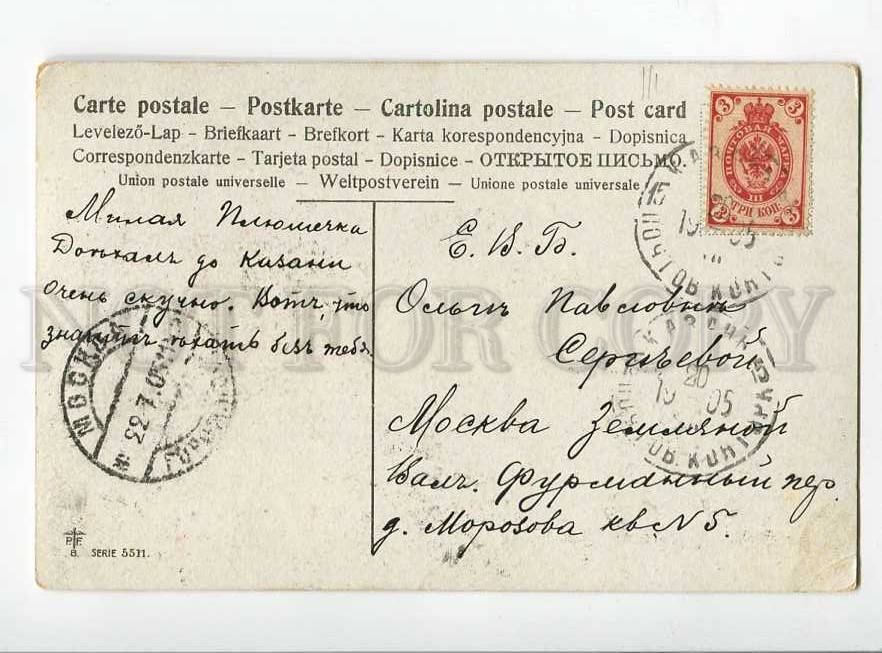 Carte postale – Postkarte – Cartolina postale – Post card
Levelező-Lap - Briefkaart - Brefkort - Karta korespondencyjna - Dopisnica
Correspondenzkarte - Tarjeta postal - Dopisnice - ОТКРЫТОЕ ПИСЬМО.
Union postale universelle – Weltpostverein – Unione postale universale
Милая Плюшечка
Доѣхалъ до Казани
очень скучно. Вотъ, что
значитъ ѣхать безъ тебя.
Е. В. Б.
Ольгѣ Павловнѣ
Сергѣевой
Москва Земляной
Валъ. Фурманный пер.
д. Морозова кв N 5.
3 3
ПОЧТОВАЯ МАРКА
III
3 ТРИ КОП. 3
КАЗАНЬ
15
19 05
VII
ПОЧТОВ. КОНТОРА
КАЗАНЬ
20
19 05
ПОЧТОВ. КОНТОРА
МОСКВА
22.7.05
P.F.
B. SERIE 5511.
NOT FOR COPY